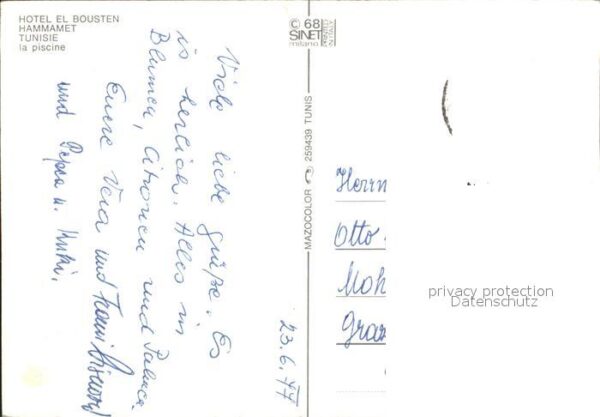 HOTEL EL BOUSTEN
HAMMAMET
TUNISIE
la piscine
© 68
SINET
milano
PRINTED
IN ITALY
MAZOCOLOR 259439 TUNIS
Viele liebe Grüße. Es
ist herrlich. Alles in
Blumen, Citronen und Palmen.
Euere Vera und
und Pepra u.
23.6.77
Herrn
Otto
Moh
Graz
privacy protection
Datenschutz